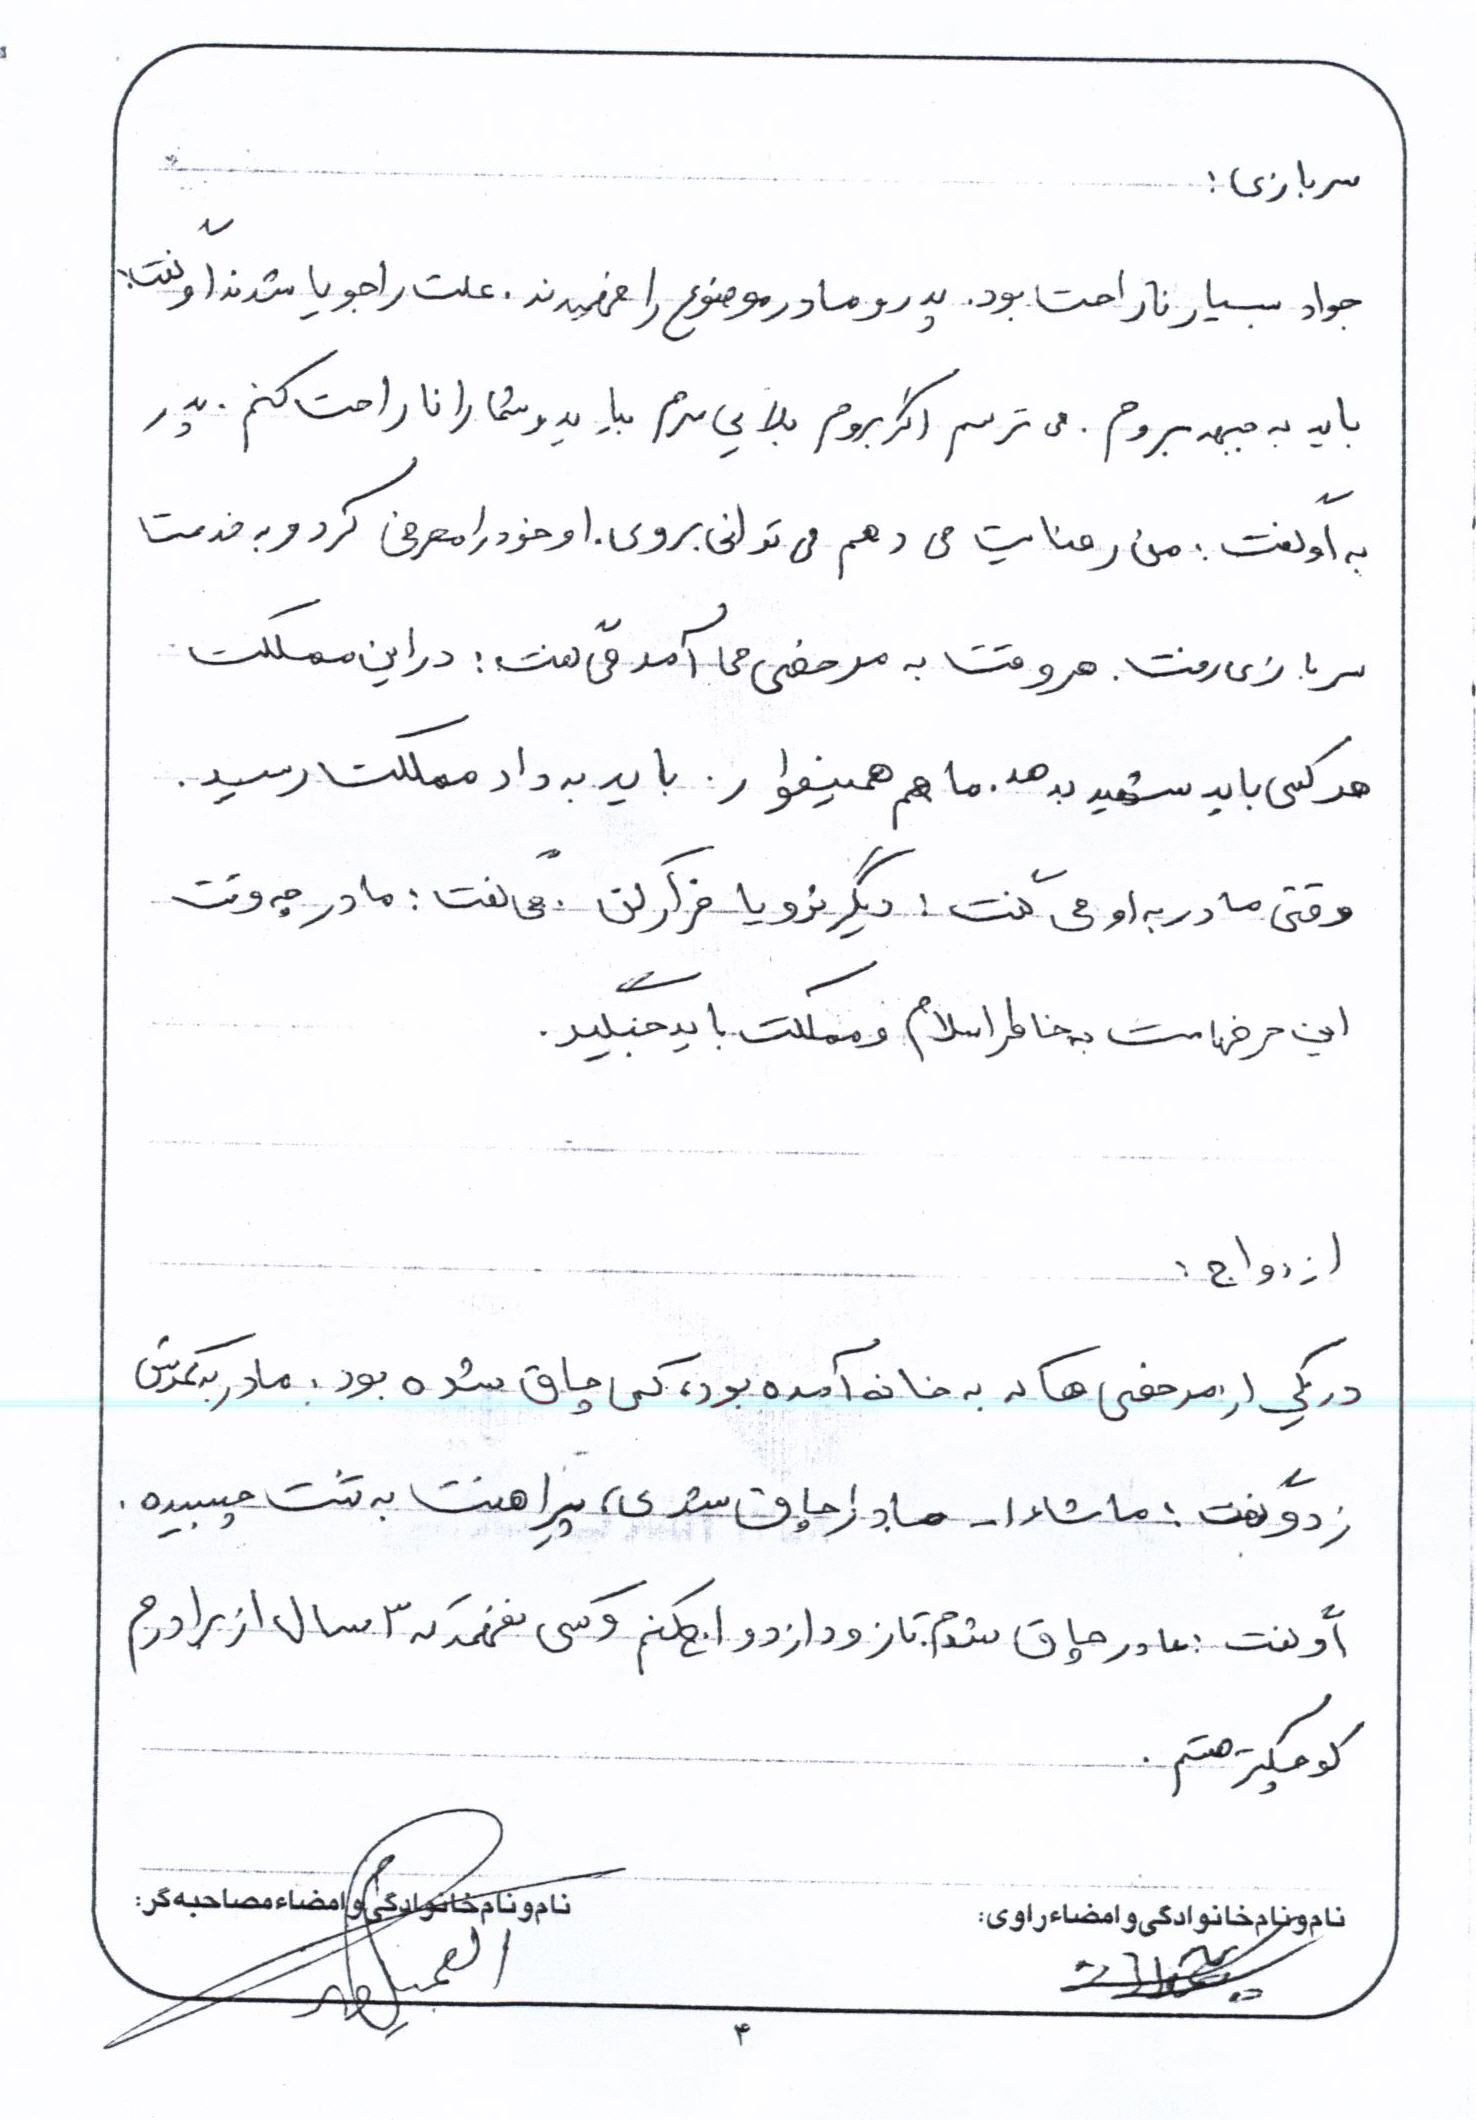 سربازی:
جواد بسیار ناراحت بود. پدر و مادر موضوع را فهمیدند. علت را جویا شدند او گفت:
باید به جبهه بروم. می ترسم اگر بروم بلایی سرم بیاید و شما را ناراحت کنم. پدر
به او گفت: من رضایت می دهم می توانی بروی. او خود را معرفی کرد و به خدمت
سربازی رفت. هر وقت به مرخصی می آمد می گفت: در این مملکت
هر کسی باید شهید بدهد. ما هم همینطور. باید به داد مملکت رسید.
وقتی مادر به او می گفت: دیگر نرو یا فرار کن. می گفت: مادر چه وقت
این حرفهاست به خاطر اسلام و مملکت باید جنگید.
ازدواج:
در یکی از مرخصی ها که به خانه آمده بود، کمی چاق شده بود. مادر به کمرش
زد و گفت: ماشاءا... چاق شدی، پیراهنت به تنت چسبیده.
او گفت: مادر چاق شدم تا زود ازدواج کنم و کسی نفهمد که ۳ سال از برادرم
کوچکتر هستم.
نام و نام خانوادگی و امضاء راوی:
نام و نام خانوادگی و امضاء مصاحبه گر:
۴